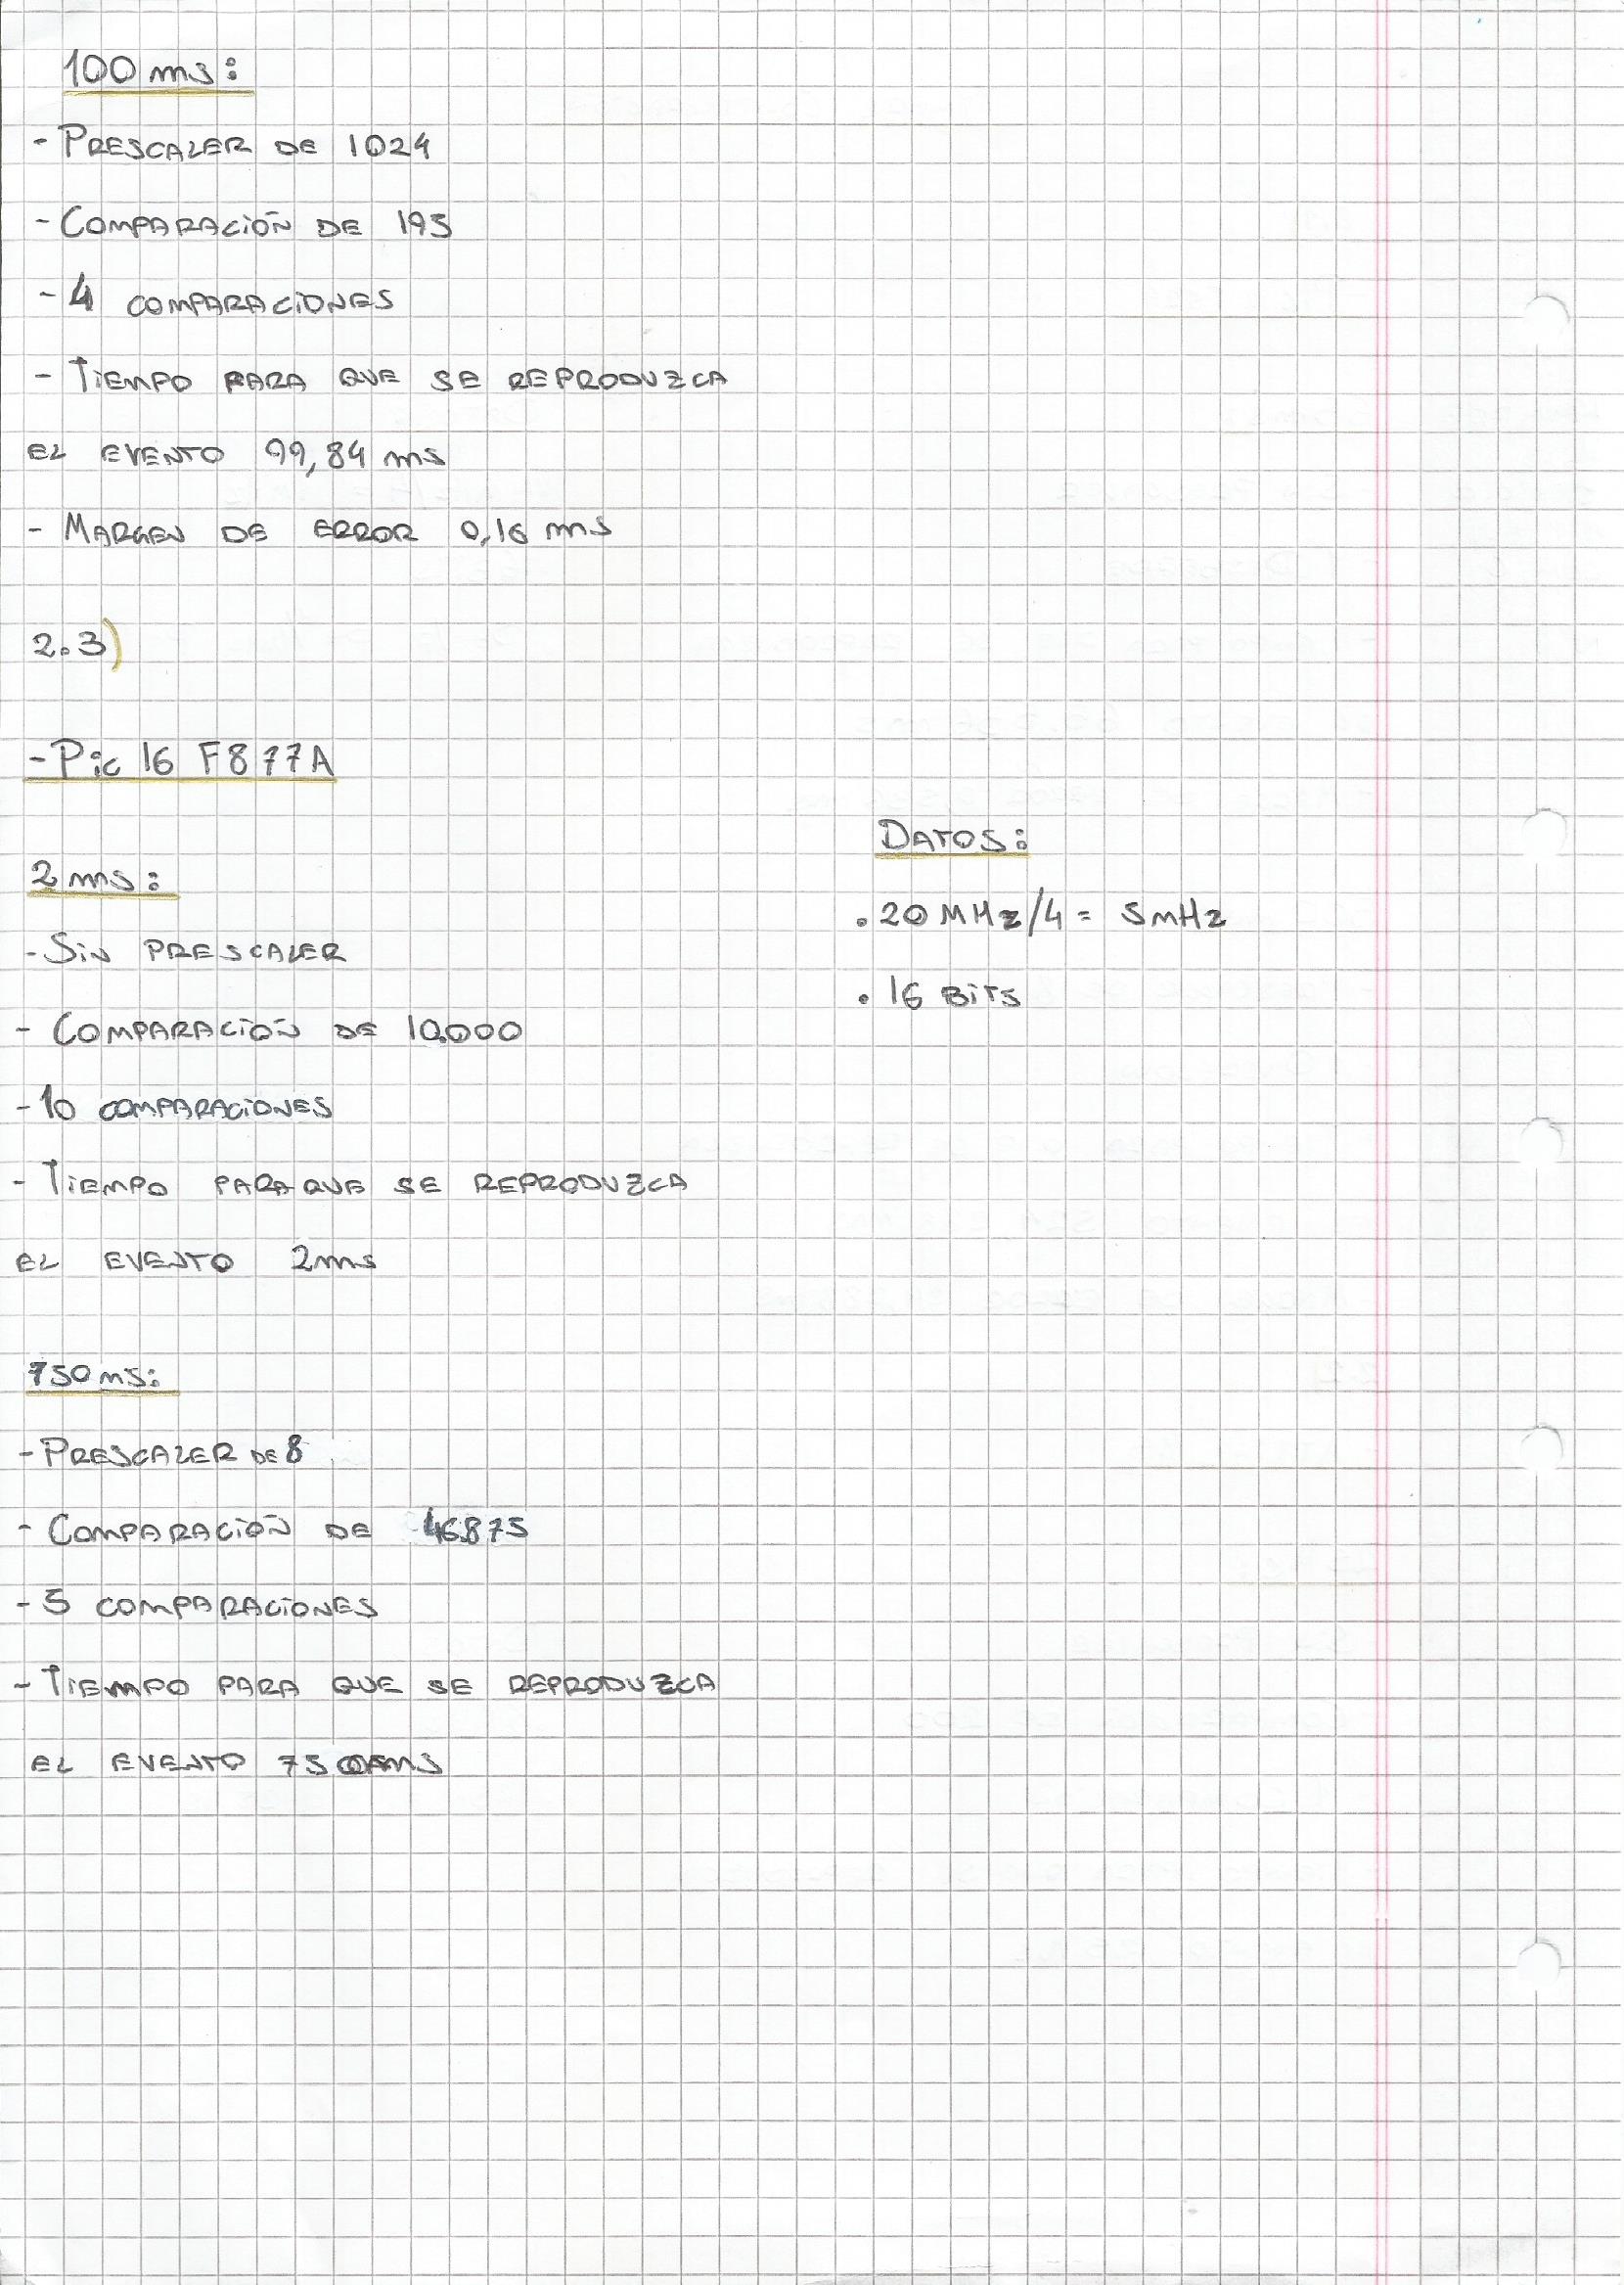 100 ms:
- PRESCALER DE 1024
- COMPARACIÓN DE 195
- 4 COMPARACIONES
- TIEMPO PARA QUE SE REPRODUZCA
EL EVENTO 99,84 ms
- MARGEN DE ERROR 0,16 ms
2.3)
- Pic 16 F877A
2 ms:
- SIN PRESCALER
- COMPARACIÓN DE 10.000
- 10 COMPARACIONES
- TIEMPO PARA QUE SE REPRODUZCA
EL EVENTO 2ms
DATOS:
. 20 MHz/4 = 5 mHz
. 16 BITS
750 ms:
- PRESCALER DE 8
- COMPARACIÓN DE 46875
- 5 COMPARACIONES
- TIEMPO PARA QUE SE REPRODUZCA
EL EVENTO 750 ms